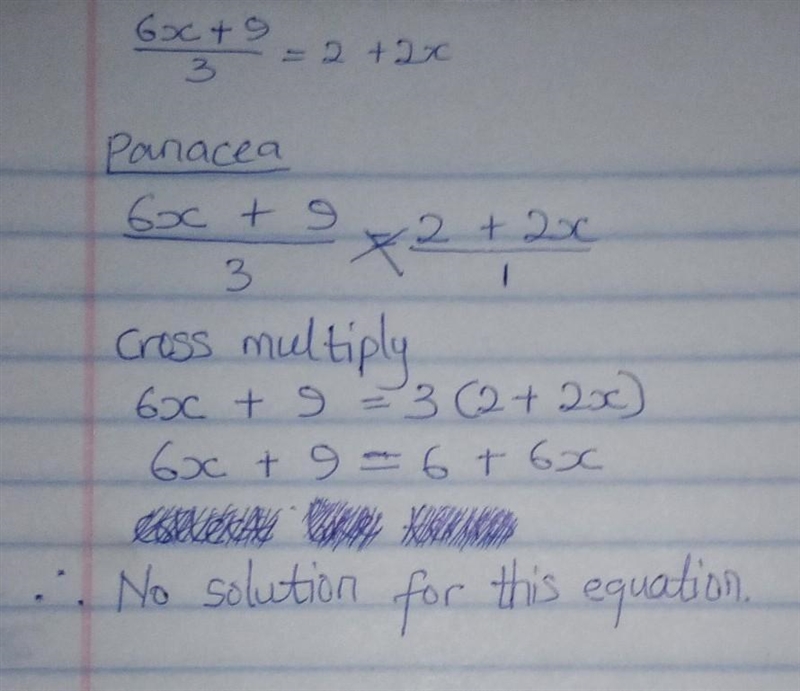 (6x + 9)/3 = 2 + 2x
Panacea
(6x + 9)/3 = (2 + 2x)/1
Cross multiply
6x + 9 = 3(2 + 2x)
6x + 9 = 6 + 6x
∴ No solution for this equation.